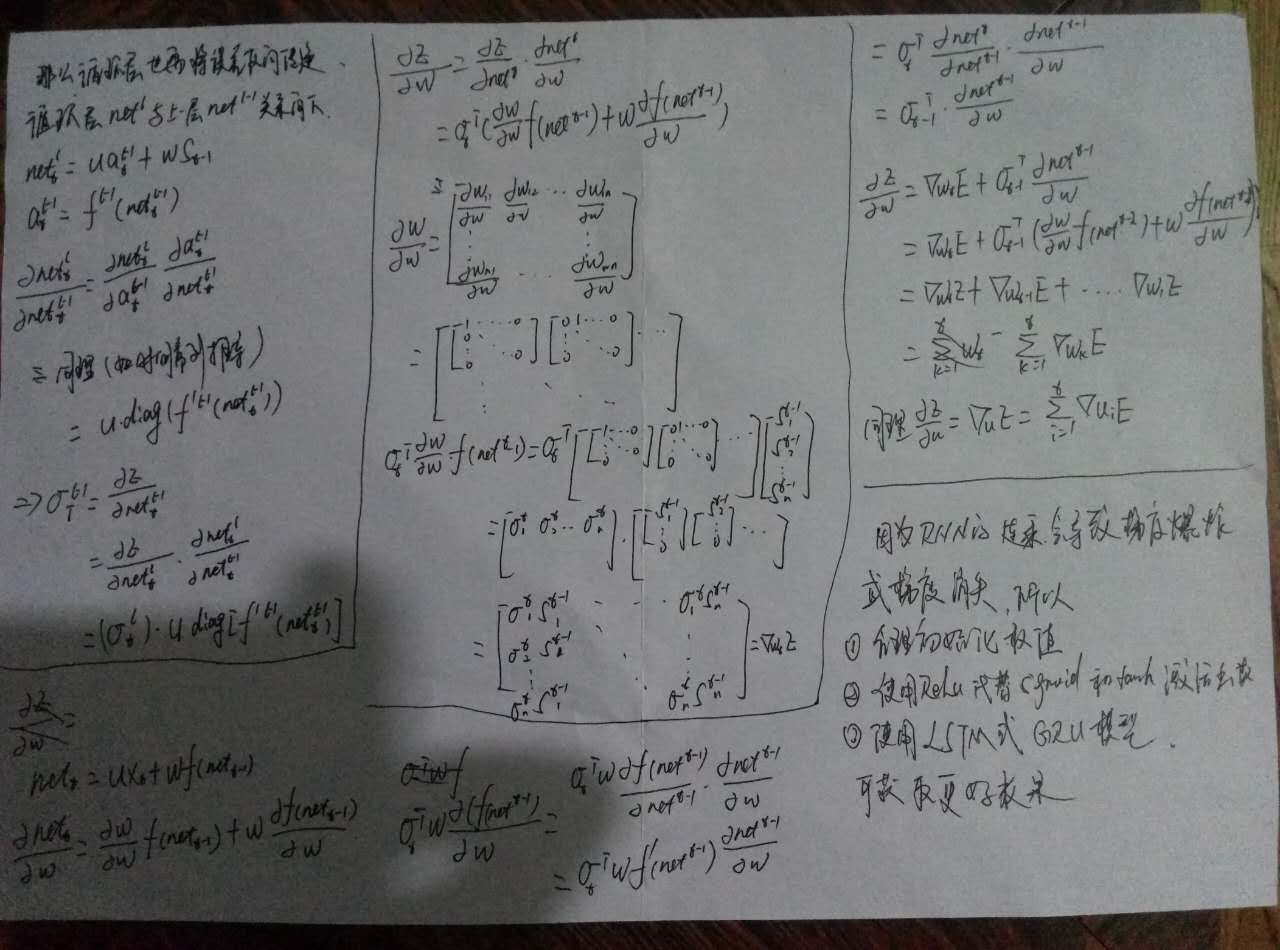 那么循环层也要将误差反向传递.
循环层 net^l 与上一层 net^{l-1} 关系如下.
net_t^l = U a_t^{l-1} + W S_{t-1}
a_t^{l-1} = f^{l-1}(net_t^{l-1})
∂net_t^l/∂net_t^{l-1} = ∂net_t^l/∂a_t^{l-1} ∂a_t^{l-1}/∂net_t^{l-1}
同理
= U·diag(f'^{l-1}(net_t^{l-1}))
=> σ_T^{l-1} = ∂E/∂net_t^{l-1}
= ∂E/∂net_t^l · ∂net_t^l/∂net_t^{l-1}
= (σ_t^l)·U diag[f'^{l-1}(net_t^{l-1})]
∂E/∂W =
net_t = U X_t + W f(net_{t-1})
∂net_t/∂W = ∂W/∂W f(net_{t-1}) + W ∂f(net_{t-1})/∂W
∂E/∂W = ∂E/∂net^t · ∂net^t/∂W
= σ_t^T (∂W/∂W f(net^{t-1}) + W ∂f(net^{t-1})/∂W)
∂W/∂W = [∂W_{11}/∂W ∂W_{12}/∂W ... ∂W_{1n}/∂W
⋮ ⋮
∂W_{n1}/∂W ... ∂W_{nn}/∂W]
= [[1 ... 0 0 ⋮ ... 0] [0 1 ... 0 0 ⋮ ... 0] ...]
σ_t^T ∂W/∂W f(net^{t-1}) = σ_t^T [[1 ... 0 ⋮ 0] [0 1 ... 0 ⋮ 0 ... 0] ...] [S_1^{t-1} S_2^{t-1} ⋮ S_n^{t-1}]
= [σ_1^t σ_2^t ... σ_n^t] · [[S_1^{t-1} 0 ⋮ 0] [S_2^{t-1} 0 ⋮ 0] ...]
= [σ_1^t S_1^{t-1} ... σ_1^t S_n^{t-1}
σ_2^t S_2^{t-1} ⋮
⋮
σ_n^t S_1^{t-1} σ_n^t S_n^{t-1}] = ∇_{W_t}E
σ^T W f
σ_t^T W ∂(f(net^{t-1})/∂W = σ_t^T W ∂f(net^{t-1})/∂net^{t-1} · ∂net^{t-1}/∂W
= σ_t^T W f'(net^{t-1}) ∂net^{t-1}/∂W
= σ_t^T ∂net^t/∂net^{t-1} · ∂net^{t-1}/∂W
= σ_{t-1}^T · ∂net^{t-1}/∂W
∂E/∂W = ∇_{W_t}E + σ_{t-1}^T ∂net^{t-1}/∂W
= ∇_{W_t}E + σ_{t-1}^T (∂W/∂W f(net^{t-2}) + W ∂f(net^{t-2})/∂W)
= ∇_{W_t}E + ∇_{W_{t-1}}E + .... ∇_{W_1}E
= Σ_{k=1}^t W_t - Σ_{k=1}^t ∇_{W_k}E
同理 ∂E/∂U = ∇_U E = Σ_{i=1}^t ∇_{U_i}E
因为RNN的连乘会导致梯度爆炸
或梯度消失,所以
① 合理初始化权值
② 使用Relu代替Sgmid和tanh激活函数
③ 使用LSTM或GRU模型.
可获取更好效果